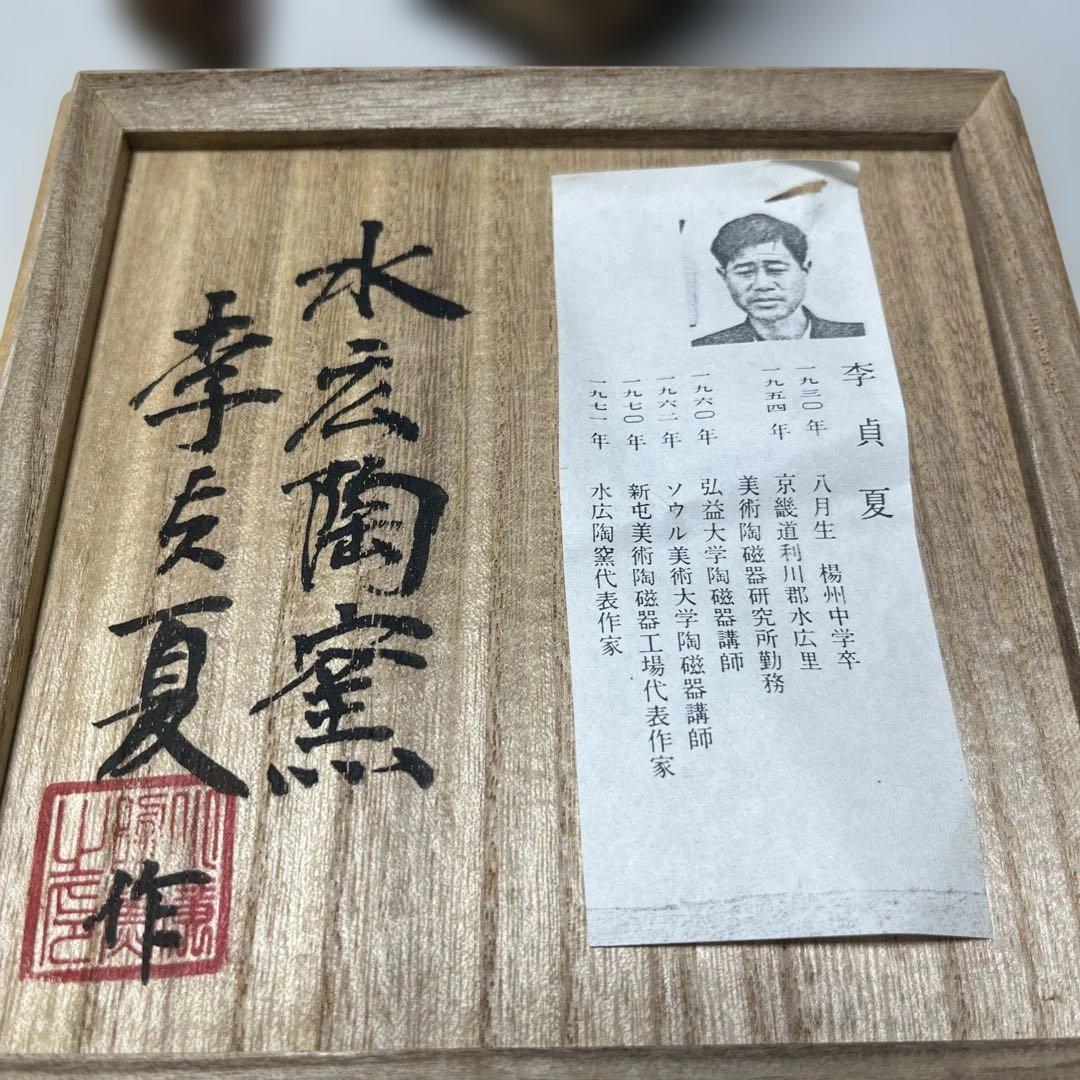 李貞夏
一九三〇年 八月生 楊州中学卒
一九五四年 京畿道利川郡水広里
美術陶磁器研究所勤務
一九六〇年 弘益大学陶磁器講師
一九六二年 ソウル美術大学陶磁器講師
一九七〇年 新屯美術陶磁器工場代表作家
一九七一年 水広陶窯代表作家
水広陶窯
李貞夏作